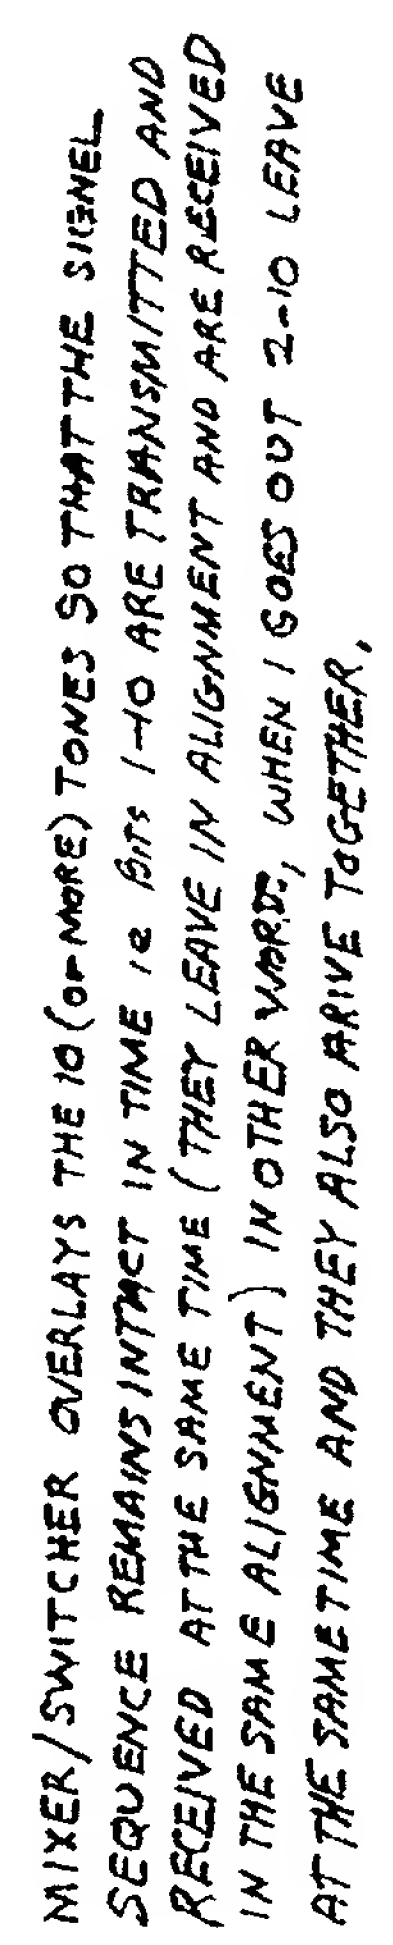 MIXER/SWITCHER OVERLAYS THE 10 (OR MORE) TONES SO THAT THE SIGNEL
SEQUENCE REMAINS INTACT IN TIME ie Bits 1-10 ARE TRANSMITTED AND
RECEIVED AT THE SAME TIME (THEY LEAVE IN ALIGNMENT AND ARE RECEIVED
IN THE SAME ALIGNMENT) IN OTHER WORDS, WHEN 1 GOES OUT 2-10 LEAVE
AT THE SAME TIME AND THEY ALSO ARIVE TOGETHER,